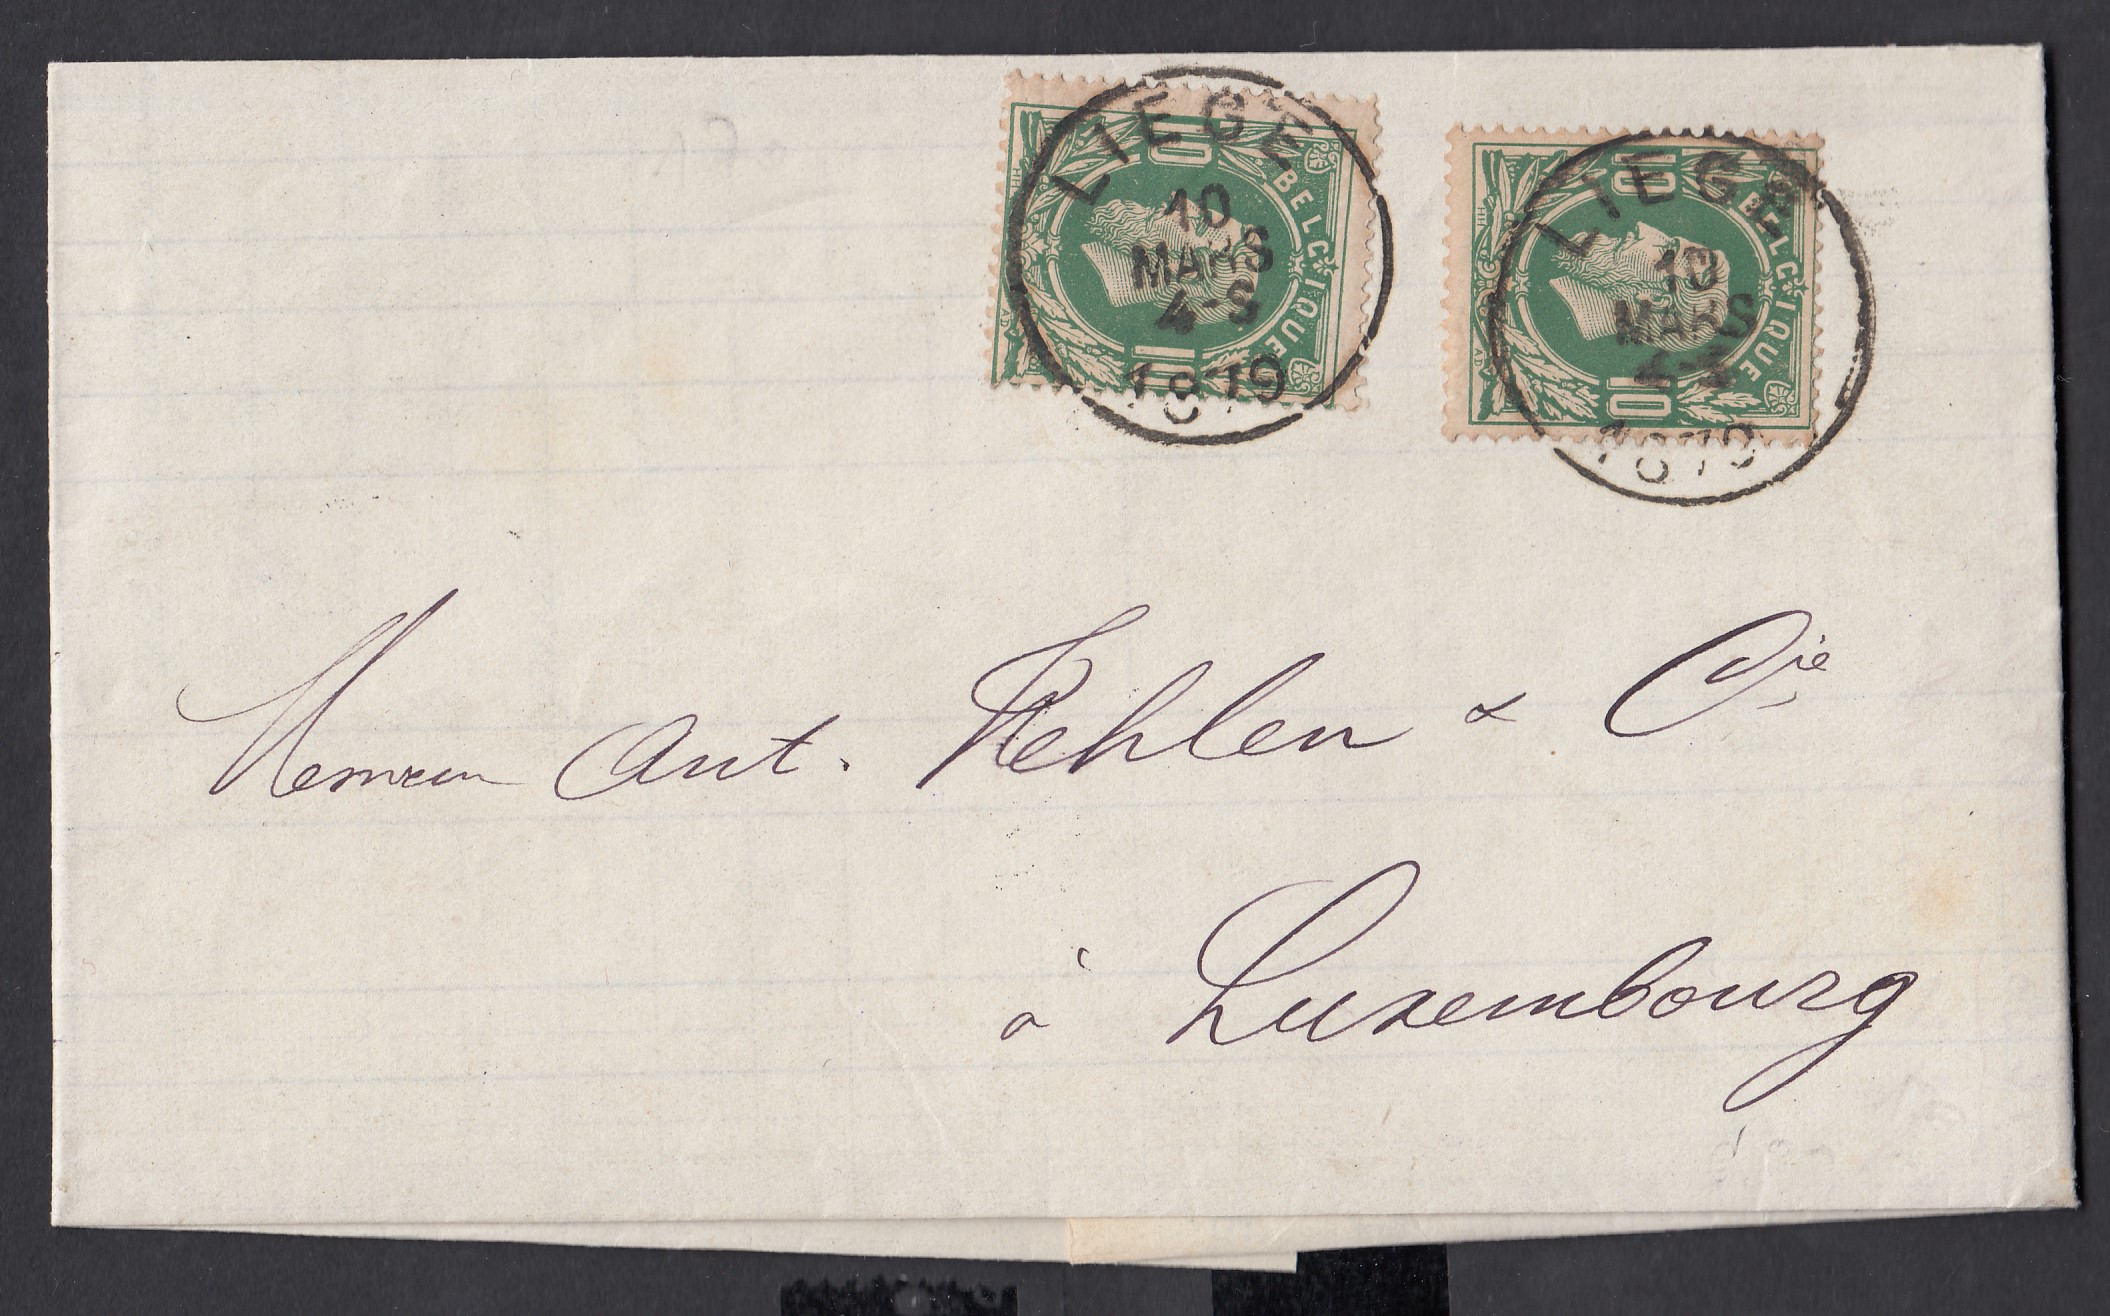 LIEGE
10
MARS
4-S
1879
10
BELGIQUE
10
LIEGE
10
MARS
1879
10
BELGIQUE
10
Ant. Kehlen & Cie
à Luxembourg